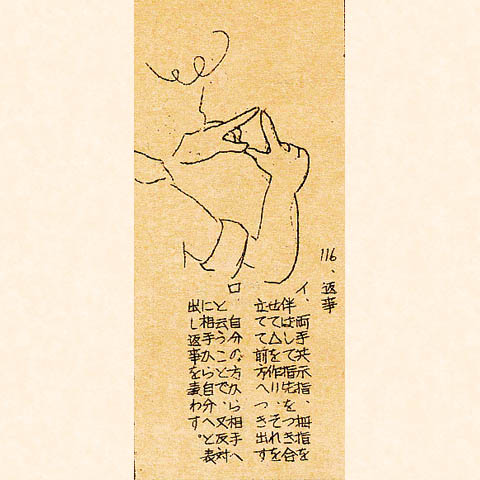 116、返事
イ、両手共示指、拇指を
伸ばして指先をつき合
せて△を作り、それを
立てて前方へつき出す
ロ 自分の方から相手へ
と云うことで、又反対
に相手から自分へと表
出し返事を表わす。